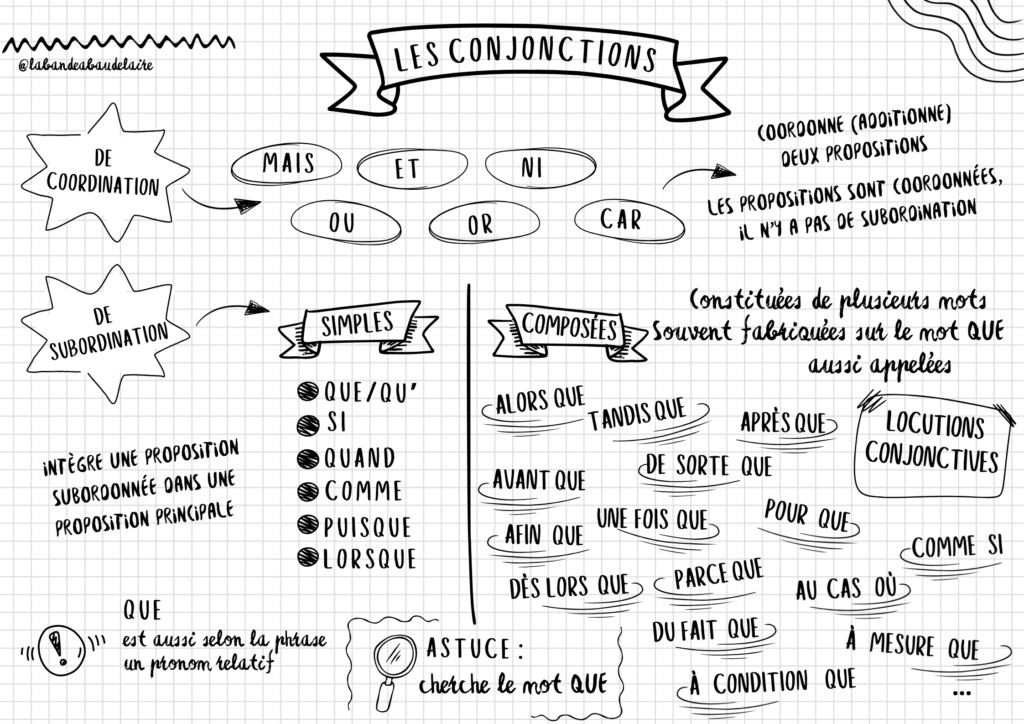 LES CONJONCTIONS
@labandeabaudelaire
DE
COORDINATION
MAIS
ET
NI
OU
OR
CAR
COORDONNE (ADDITIONNE)
DEUX PROPOSITIONS
LES PROPOSITIONS SONT COORDONNÉES,
IL N'Y A PAS DE SUBORDINATION
DE
SUBORDINATION
INTÈGRE UNE PROPOSITION
SUBORDONNÉE DANS UNE
PROPOSITION PRINCIPALE
SIMPLES
QUE/QU'
SI
QUAND
COMME
PUISQUE
LORSQUE
COMPOSÉES
Constituées de plusieurs mots
Souvent fabriquées sur le mot QUE
aussi appelées
LOCUTIONS
CONJONCTIVES
ALORS QUE
TANDIS QUE
APRÈS QUE
AVANT QUE
DE SORTE QUE
AFIN QUE
UNE FOIS QUE
POUR QUE
COMME SI
DÈS LORS QUE
PARCE QUE
AU CAS OÙ
DU FAIT QUE
À MESURE QUE
À CONDITION QUE
...
QUE
est aussi selon la phrase
un pronom relatif
ASTUCE :
cherche le mot QUE